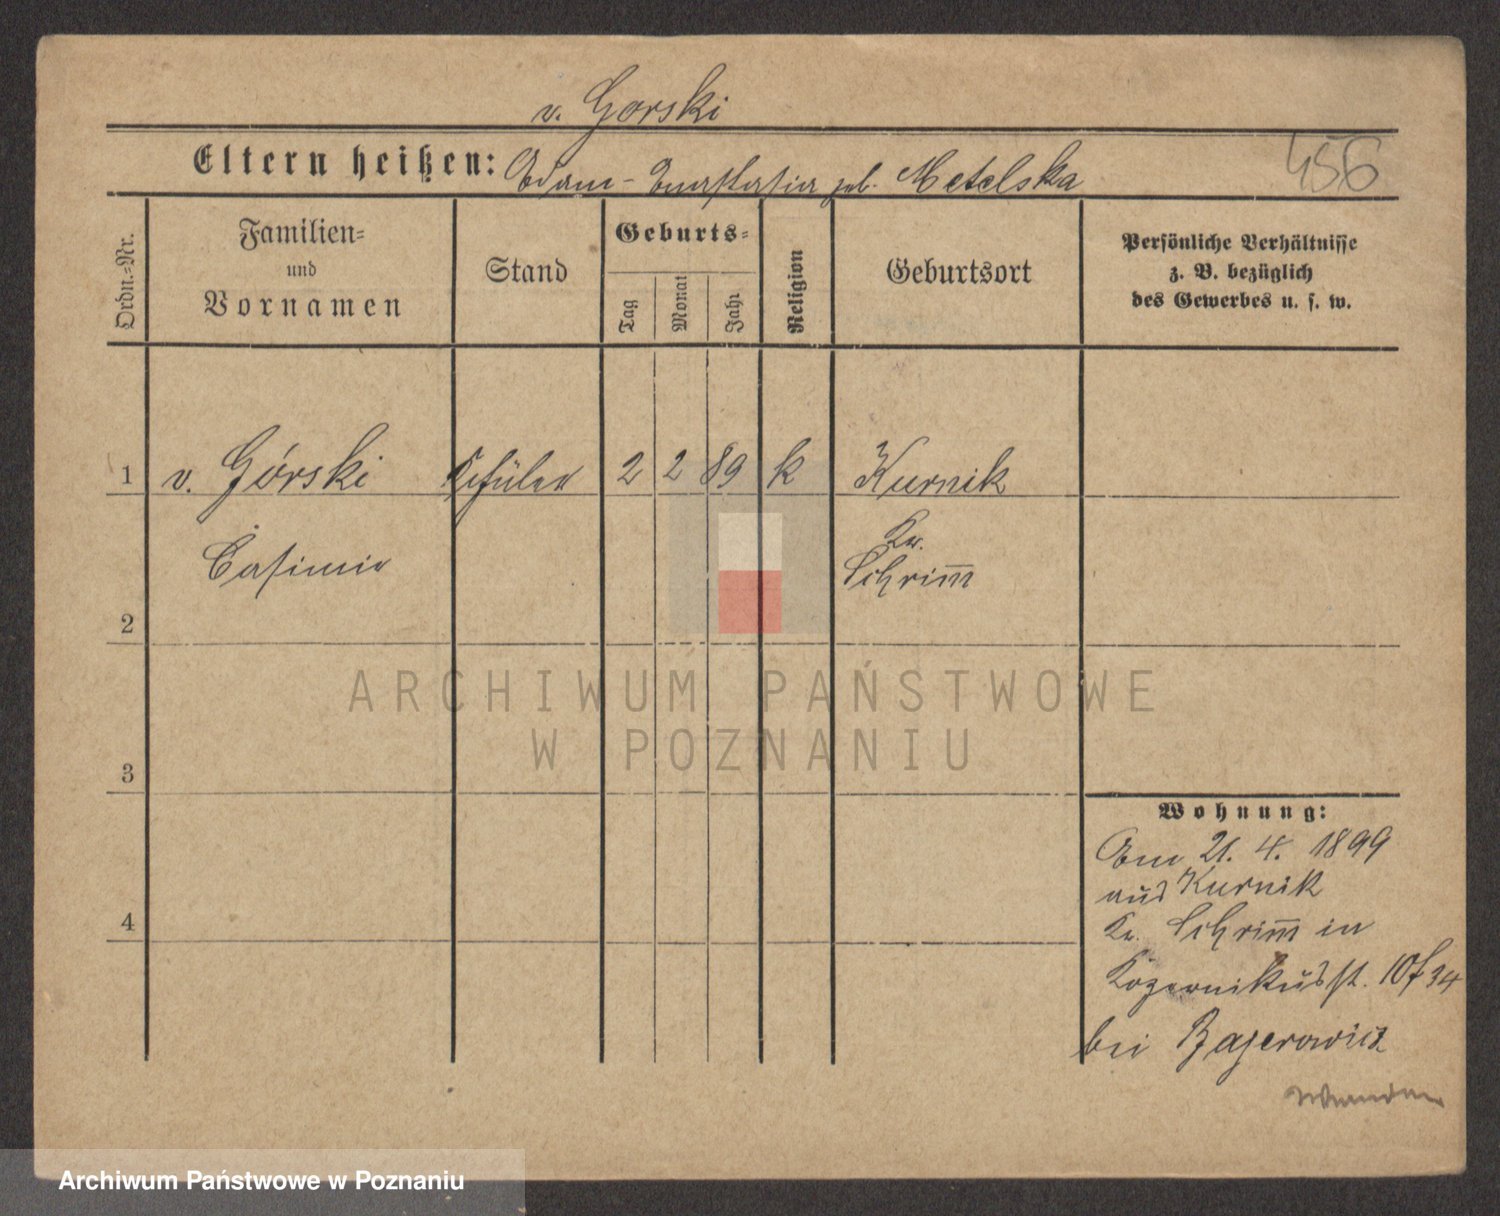 v. Gorski
Eltern heißen: Adam - Anastasia geb. Metelska
456
Ordn.=Nr.
Familien=
und
Vornamen
Stand
Geburts=
Tag
Monat
Jahr
Religion
Geburtsort
Persönliche Verhältnisse
z. B. bezüglich
des Gewerbes u. s. w.
1 v. Górski Schüler 2 2 89 k Kurnik
Casimir
Kr.
Schrim̅
2
ARCHIWUM PAŃSTWOWE
W POZNANIU
3
4
Wohnung:
Am 21. 4. 1899
aus Kurnik
Kr. Schrim̅ in
bei Bajerowicz
Archiwum Państwowe w Poznaniu